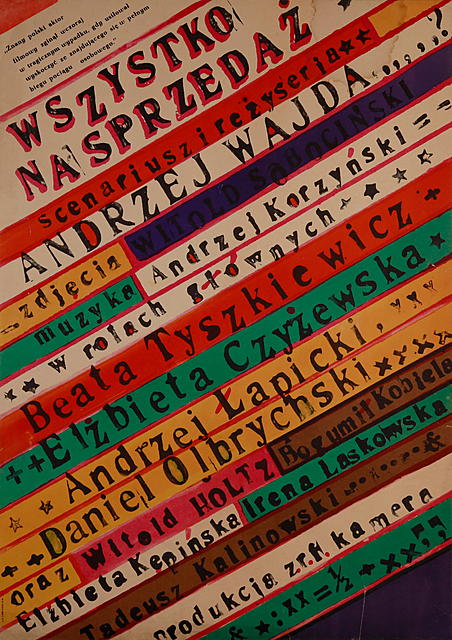 „Znany polski aktor
filmowy zginął wczoraj
w tragicznym wypadku, gdy usiłował
wyskoczyć ze znajdującego się w pełnym
biegu pociągu osobowego."
WSZYSTKO
NA SPRZEDAŻ
scenariusz i reżyseria ★★
ANDRZEJ WAJDA....,?
zdjęcia WITOLD SOBOCIŃSKI
muzyka Andrzej Korzyński
★★ w rolach głównych + ★ ★ ★
Beata Tyszkiewicz +
++Elżbieta Czyżewska ★
Andrzej Łapicki,
++ Daniel Olbrychski
oraz Witold HOLTZ Bogumił Kobiela
Elżbieta Kępińska Irena Laskowska
Tadeusz Kalinowski
produkcja zrf. kamera
& ★:xx=½+xx;;